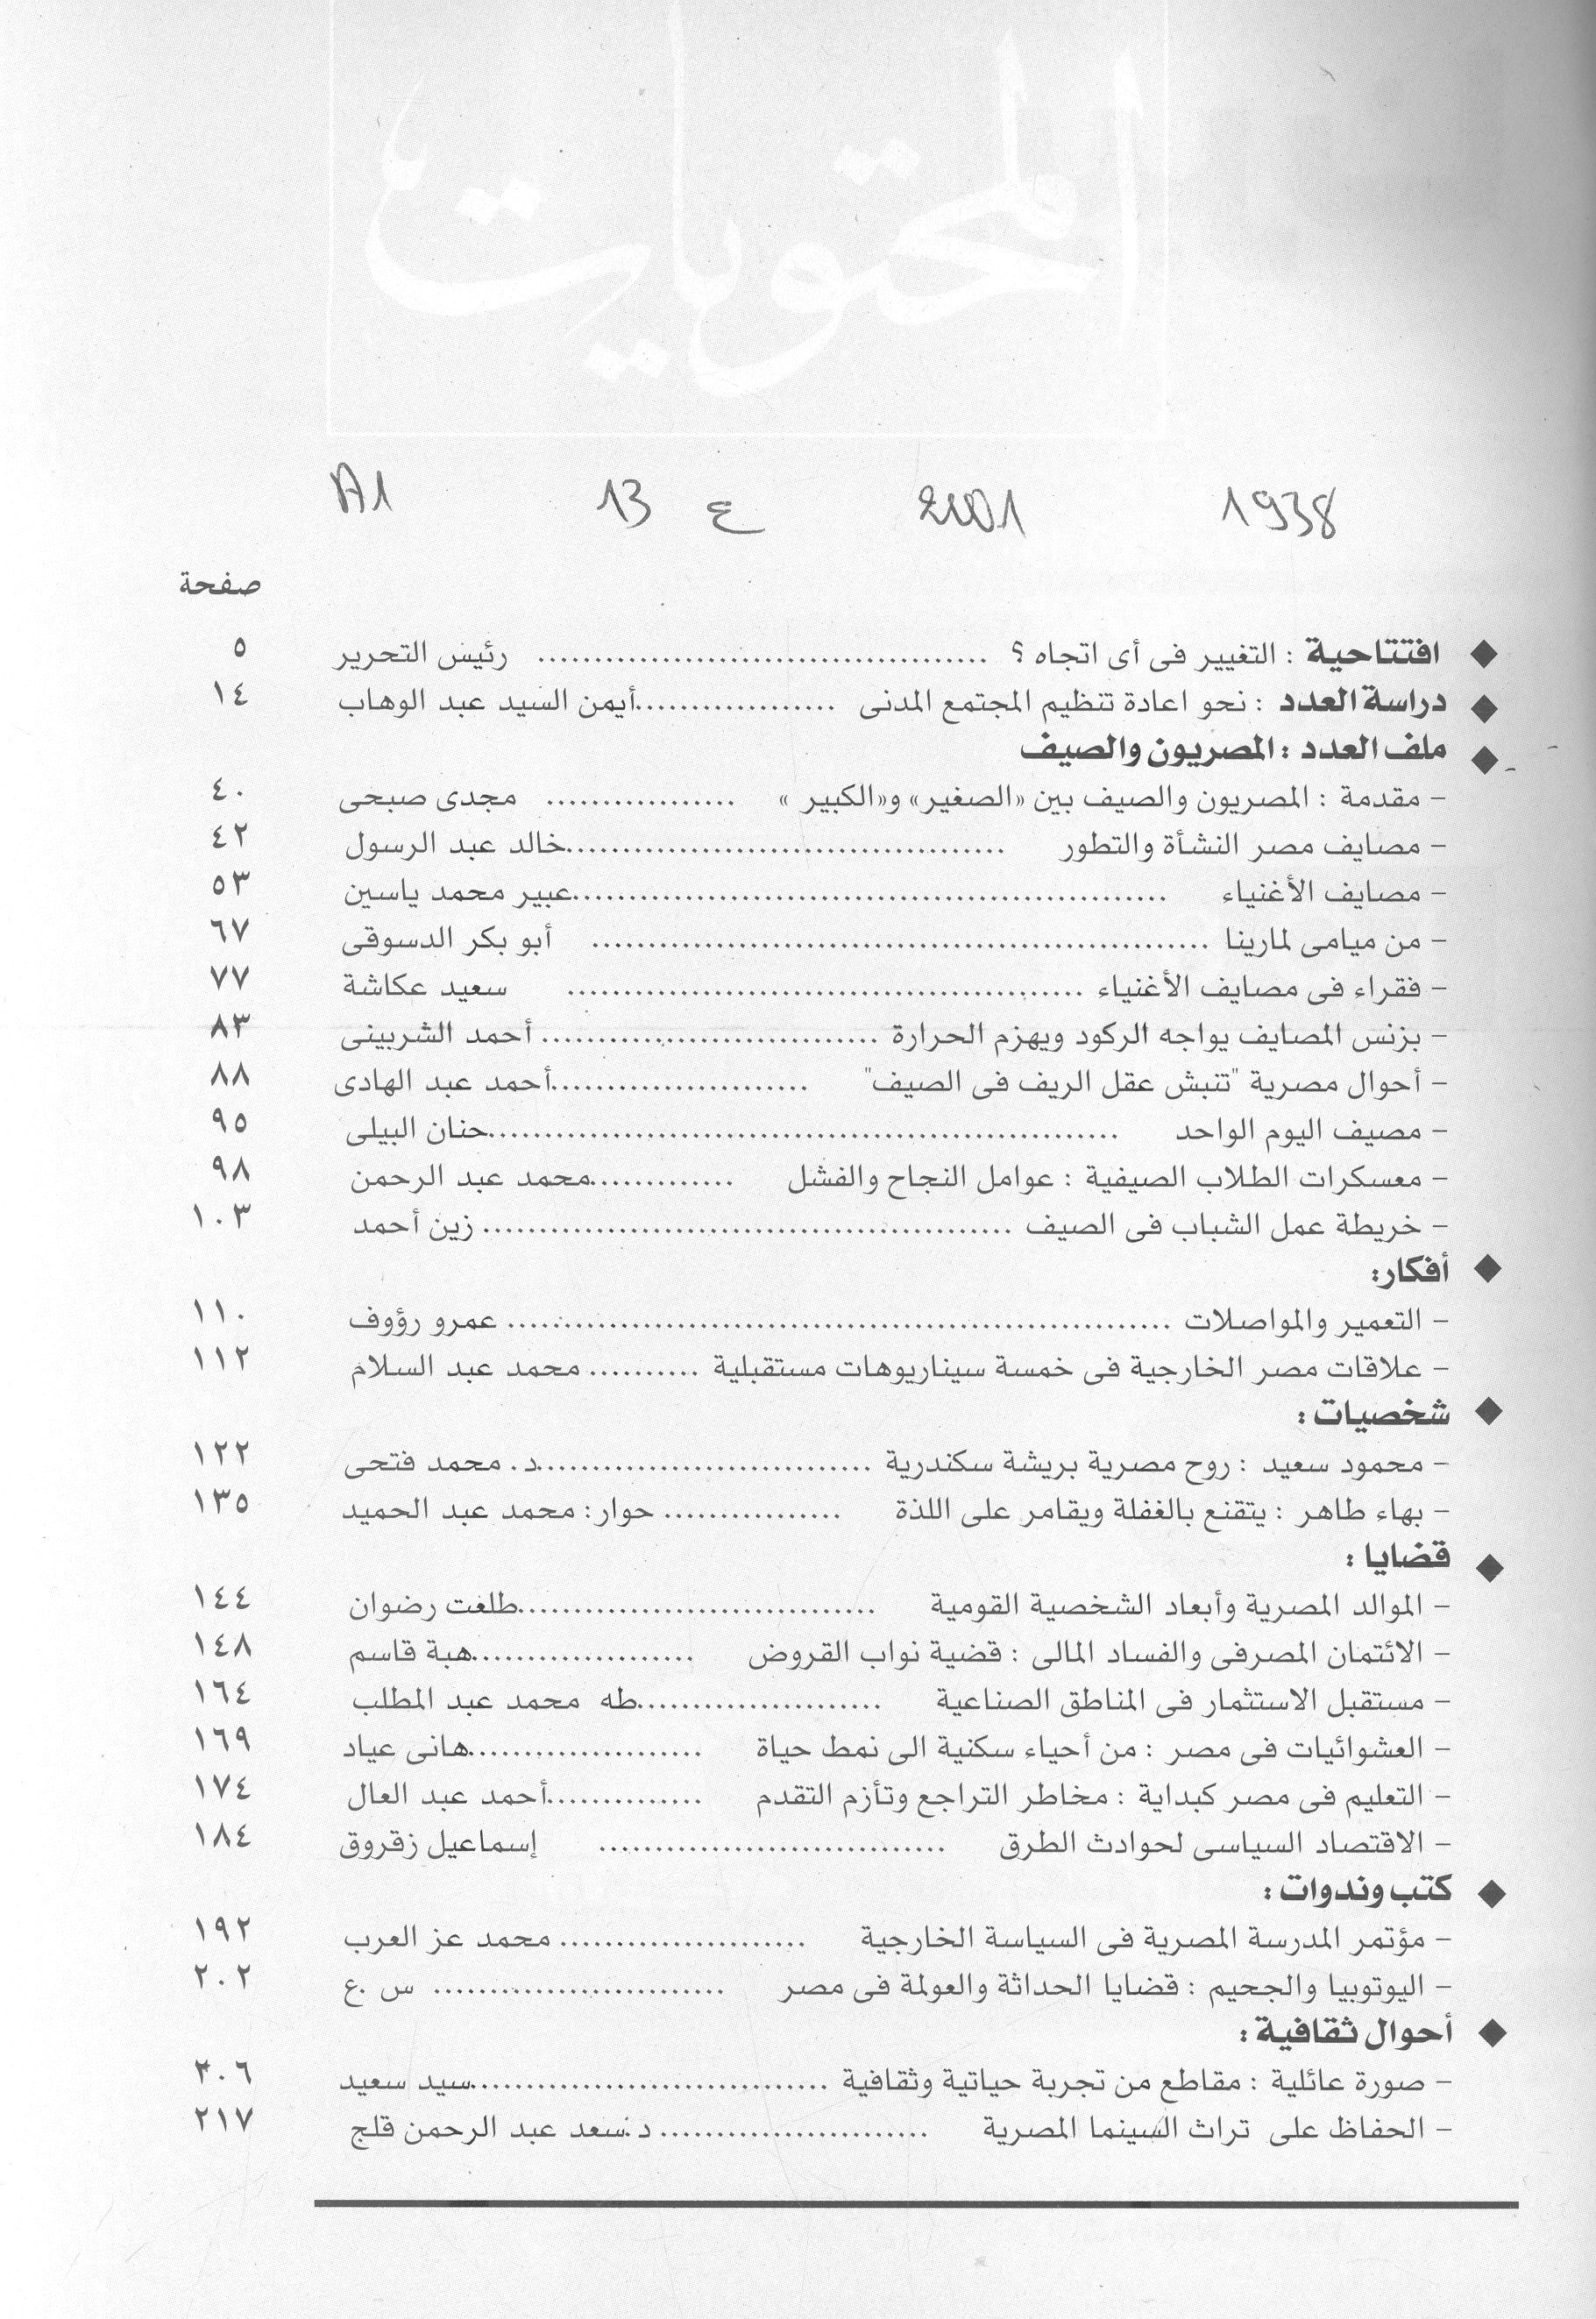 المحتويات
1938 2001 ع 13 A1
صفحة
◆ افتتاحية : التغيير فى أى اتجاه ؟ ........................................ رئيس التحرير ٥
◆ دراسة العدد : نحو اعادة تنظيم المجتمع المدنى ..................أيمن السيد عبد الوهاب ١٤
◆ ملف العدد : المصريون والصيف
– مقدمة : المصريون والصيف بين «الصغير» و«الكبير » ................. مجدى صبحى ٤٠
– مصايف مصر النشأة والتطور .......................................خالد عبد الرسول ٤٢
– مصايف الأغنياء .....................................................عبير محمد ياسين ٥٣
– من ميامى لمارينا ....................................................... أبو بكر الدسوقى ٦٧
– فقراء فى مصايف الأغنياء .............................................. سعيد عكاشة ٧٧
– بزنس المصايف يواجه الركود ويهزم الحرارة .............................. أحمد الشربينى ٨٣
– أحوال مصرية "تنبش عقل الريف فى الصيف" .......................أحمد عبد الهادى ٨٨
– مصيف اليوم الواحد ........................................................حنان البيلى ٩٥
– معسكرات الطلاب الصيفية : عوامل النجاح والفشل .............محمد عبد الرحمن ٩٨
– خريطة عمل الشباب فى الصيف ............................................... زين أحمد ١٠٣
◆ أفكار:
– التعمير والمواصلات ........................................................... عمرو رؤوف ١١٠
– علاقات مصر الخارجية فى خمسة سيناريوهات مستقبلية .......... محمد عبد السلام ١١٢
◆ شخصيات :
– محمود سعيد : روح مصرية بريشة سكندرية ..............................د. محمد فتحى ١٢٢
– بهاء طاهر : يتقنع بالغفلة ويقامر على اللذة ................ حوار: محمد عبد الحميد ١٣٥
◆ قضايا :
– الموالد المصرية وأبعاد الشخصية القومية ................................طلعت رضوان ١٤٤
– الائتمان المصرفى والفساد المالى : قضية نواب القروض ....................هبة قاسم ١٤٨
– مستقبل الاستثمار فى المناطق الصناعية ......................طه محمد عبد المطلب ١٦٤
– العشوائيات فى مصر : من أحياء سكنية الى نمط حياة .....................هانى عياد ١٦٩
– التعليم فى مصر كبداية : مخاطر التراجع وتأزم التقدم ..............أحمد عبد العال ١٧٤
– الاقتصاد السياسى لحوادث الطرق ............................... إسماعيل زقروق ١٨٤
◆ كتب وندوات :
– مؤتمر المدرسة المصرية فى السياسة الخارجية ...................... محمد عز العرب ١٩٢
– اليوتوبيا والجحيم : قضايا الحداثة والعولمة فى مصر .......................... س .ع ٢٠٢
◆ أحوال ثقافية :
– صورة عائلية : مقاطع من تجربة حياتية وثقافية ................................سيد سعيد ٢٠٦
– الحفاظ على تراث السينما المصرية ........................ د.سعد عبد الرحمن قلج ٢١٧